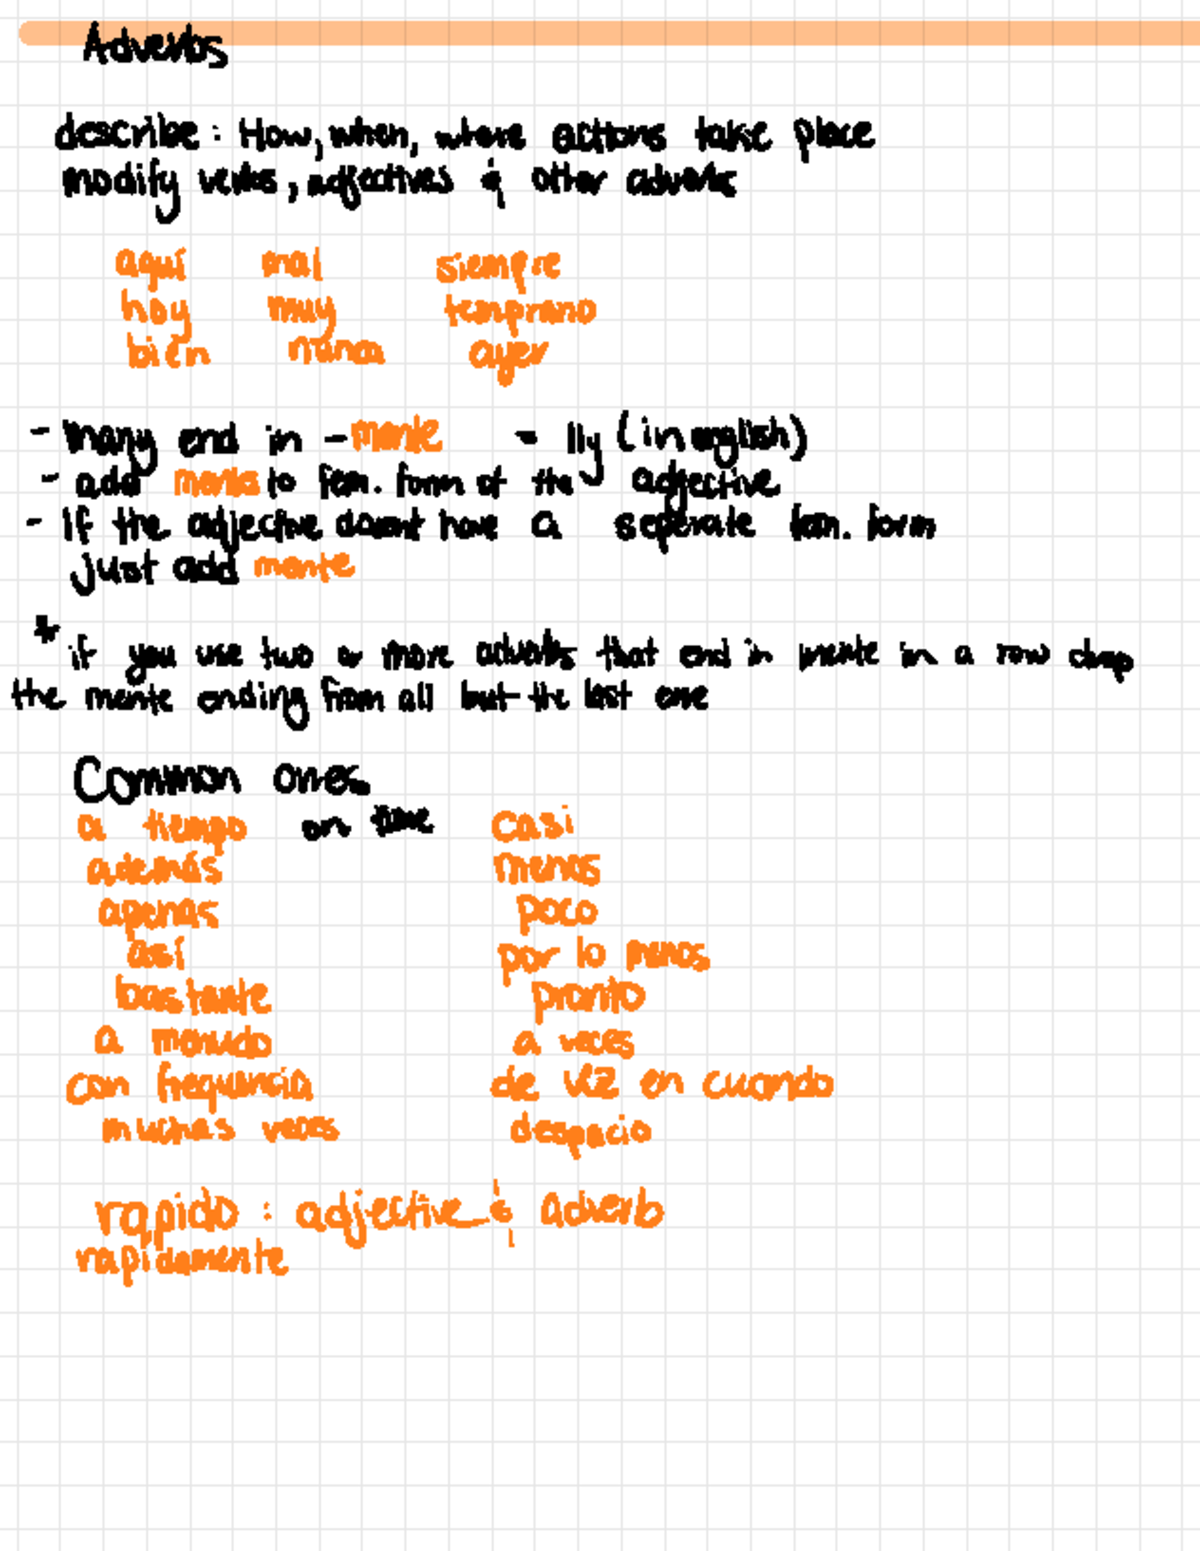 Adverbs
describe: How, when, where actions take place
modify verbs, adjectives & other adverbs
aquí mal siempre
hoy muy temprano
bien nunca ayer
- many end in -mente = lly (in english)
- add mente to fem. form of the adjective
- If the adjective doesnt have a seperate fem. form
just add mente
* if you use two or more adverbs that end in mente in a row drop
the mente ending from all but the last one
Common ones
a tiempo on time casi
además menos
apenas poco
así por lo menos
bastante pronto
a menudo a veces
con frequencia de vez en cuando
muchas veces despacio
rapido : adjective & adverb
rapidamente